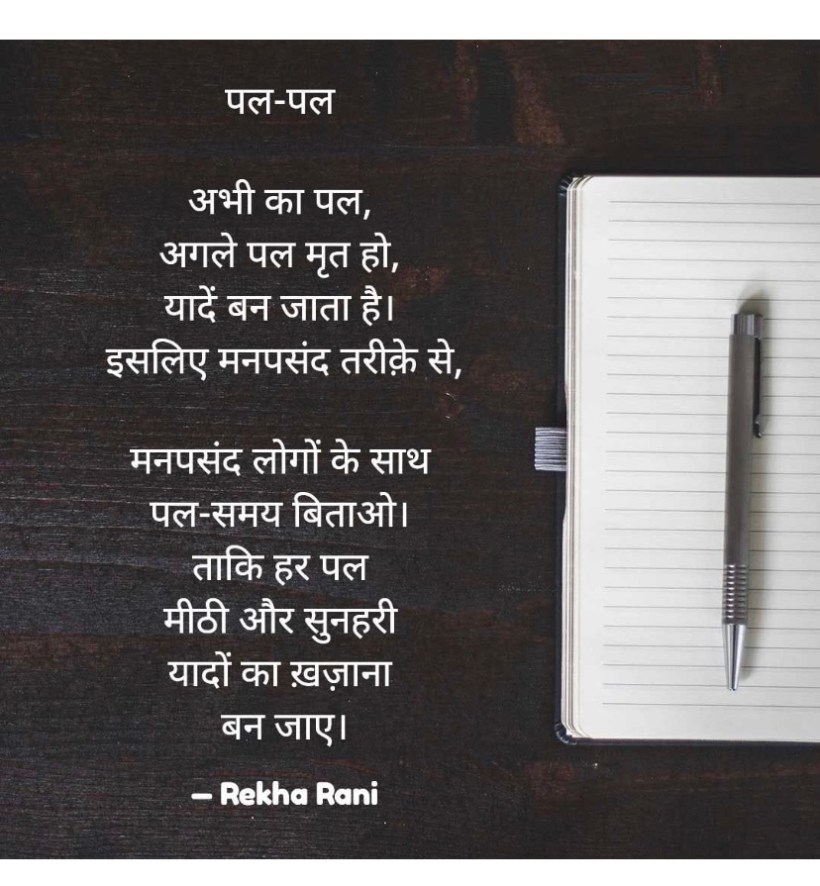 पल-पल
अभी का पल,
अगले पल मृत हो,
यादें बन जाता है।
इसलिए मनपसंद तरीक़े से,
मनपसंद लोगों के साथ
पल-समय बिताओ।
ताकि हर पल
मीठी और सुनहरी
यादों का ख़ज़ाना
बन जाए।
– Rekha Rani